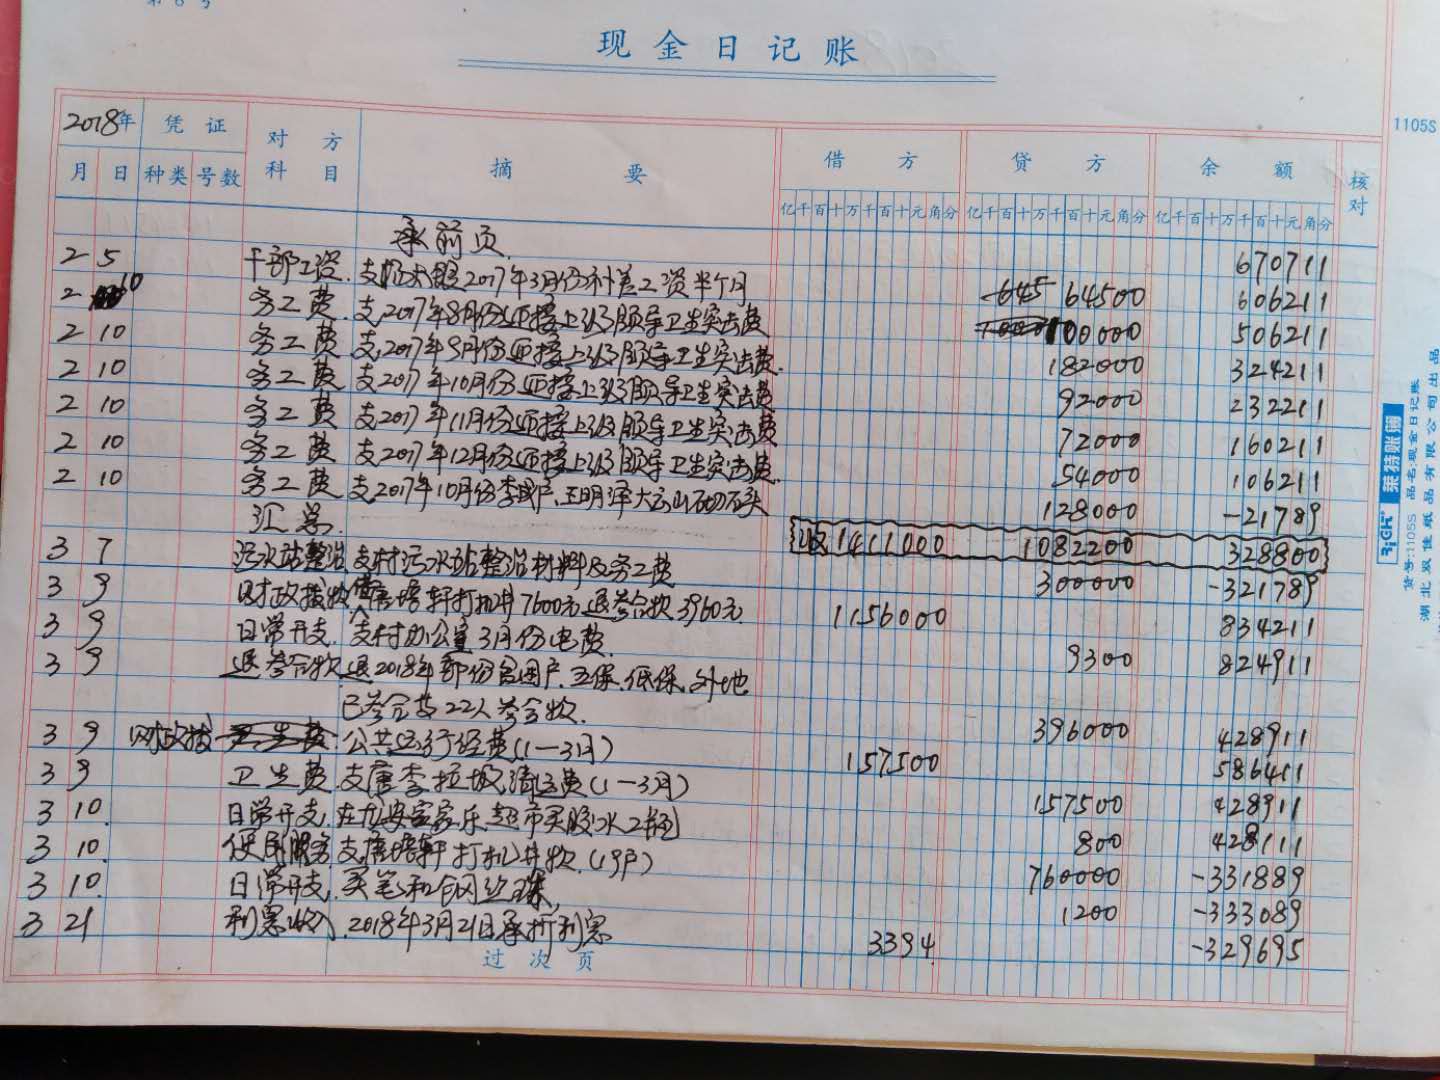 第 6 号
现金日记账
2018年 凭证 对方科目 摘要 借方 贷方 余额 核对
月 日 种类 号数 亿千百十万千百十元角分 亿千百十万千百十元角分 亿千百十万千百十元角分
承前页 670711
2 5 干部工资. 支 2017年3月份补差工资半个月 645 64500 606211
2 10 务工费. 支2017年8月份迎接上级领导卫生突击费 100000 506211
2 10 务工费 支2017年9月份迎接上级领导卫生突击费. 182000 324211
2 10 务工费 支2017年10月份迎接上级领导卫生突击费 92000 232211
2 10 务工费 支2017年11月份迎接上级领导卫生突击费 72000 160211
2 10 务工费 支2017年12月份迎接上级领导卫生突击费. 54000 106211
2 10 务工费 支2017年10月份李 户.王明泽大云山 石头 128000 -21789
汇总. 收 1411000 1082200 328800
3 7 污水站整治 支村污水站整治材料及务工费 300000 -321789
3 9 财政拨款 唐培轩打机井7600元退参合款3960元 1156000 834211
3 9 日常开支. 支村办公室3月份电费. 9300 824911
3 9 退参合款 退2018年部份贫困户.五保.低保.外地
已参合共22人参合款. 396000 428911
3 9 财政拨 卫生费. 公共运行经费(1—3月) 157500 586411
3 9 卫生费. 支唐李垃圾清运费(1—3月) 157500 428911
3 10. 日常开支. 在龙安客家乐.超市买胶水2瓶 800 428111
3 10. 便民服务 支唐培轩打机井款.(19户) 760000 -331889
3 10. 日常开支. 买笔和钢丝球, 1200 -333089
3 21 利息收入. 2018年3月21日承折利息 3394 -329695
过次页
1105S
莱特账簿
RiGHT
货号:1105S 品名:现金日记账
湖北双佳纸品有限公司出品